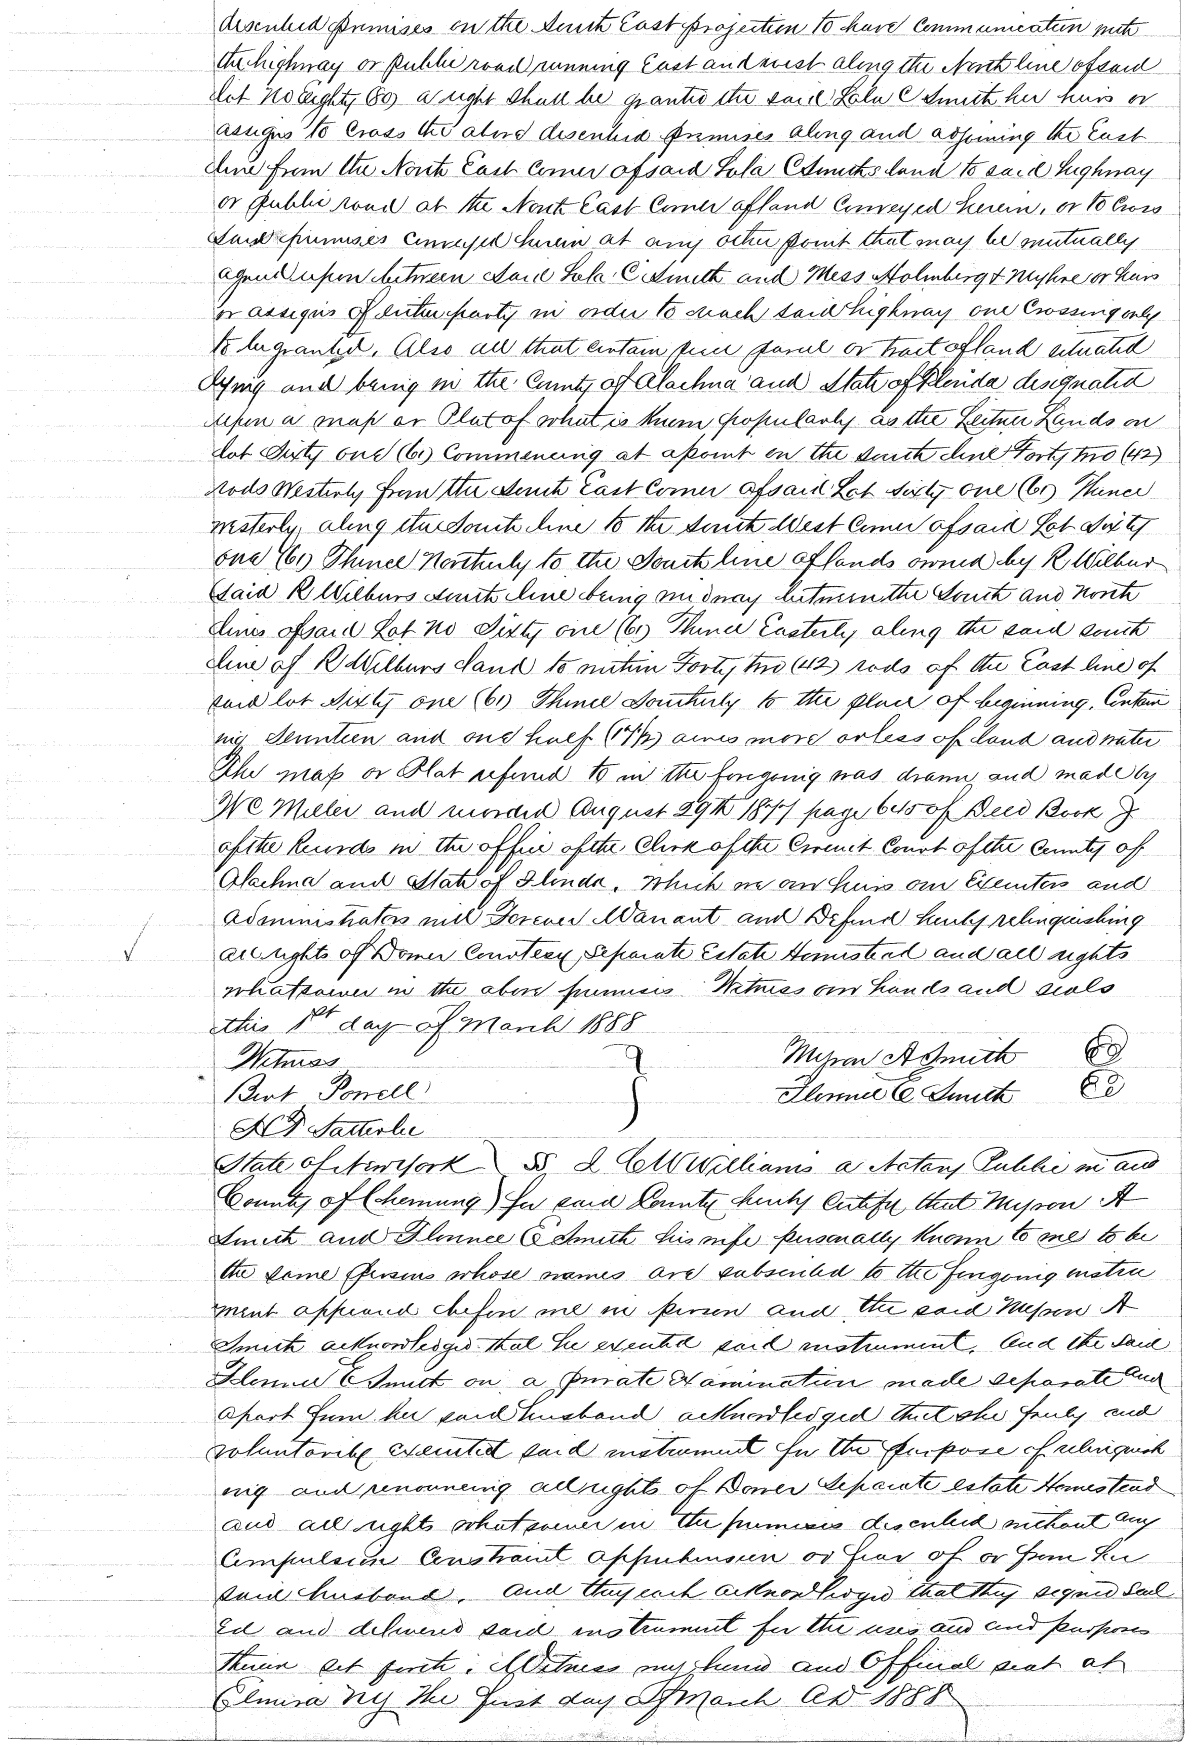 described premises on the South East projection to have Communication with
the highway or public road running East and west along the North line of said
Lot No Eighty (80) a right shall be granted the said Lola C Smith her heirs or
assigns to Cross the above described premises along and adjoining the East
line from the North East Corner of said Lola C Smiths land to said highway
or public road at the North East Corner of land Conveyed herein, or to Cross
said premises Conveyed herein at any other point that may be mutually
agreed upon between said Lola C Smith and Mess Holmberg & Myhre or heirs
or assigns of either party in order to reach said highway one Crossing only
to be granted. Also all that certain piece parcel or tract of land situated
lying and being in the County of Alachua and State of Florida designated
upon a map or Plat of what is known popularly as the Leitner Lands on
Lot Sixty one (61) Commencing at a point on the south line Forty two (42)
rods Westerly from the South East Corner of said Lot Sixty one (61) Thence
westerly along the South line to the South West Corner of said Lot Sixty
one (61) Thence Northerly to the South line of lands owned by R Wilbur
said R Wilburs south line being midway between the South and North
lines of said Lot No Sixty one (61) Thence Easterly along the said south
line of R Wilburs land to within Forty two (42) rods of the East line of
said lot Sixty one (61) Thence Southerly to the place of beginning. Contain
ing Seventeen and one half (17½) acres more or less of land and water
The map or Plat referred to in the foregoing was drawn and made by
WC Miller and recorded August 29th 1877 page 645 of Deed Book J
of the Records in the office of the Clerk of the Circuit Court of the County of
Alachua and State of Florida. Which we our heirs our Executors and
administrators will Forever Warrant and Defend hereby relinquishing
all rights of Dower Courtesy, Separate Estate Homestead and all rights
whatsoever in the above premises Witness our hands and seals
this 1st day of March 1888
Witness Myron A Smith
Bert Powell Florence E Smith
Satterlee
State of New York } SS I C W Williams a Notary Public in and
County of Chemung } for said County hereby Certify that Myron A
Smith and Florence E Smith his wife personally Known to me to be
the same persons whose names are subscribed to the foregoing instru
ment appeared before me in person and the said Myron A
Smith acknowledged that he executed said instrument. And the said
Florence E Smith on a private Examination made separate and
apart from her said husband acknowledged that she freely and
voluntarily executed said instrument for the purpose of relinquish
ing and renouncing all rights of Dower Separate estate Homestead
and all rights whatsoever in the premises described without any
Compulsion Constraint apprehension or fear of or from her
said husband. and they each acknowledged that they signed Seal
Ed and delivered said instrument for the uses and and purposes
therein set forth. Witness my hand and Official seal at
Elmira NY the first day of March AD 1888